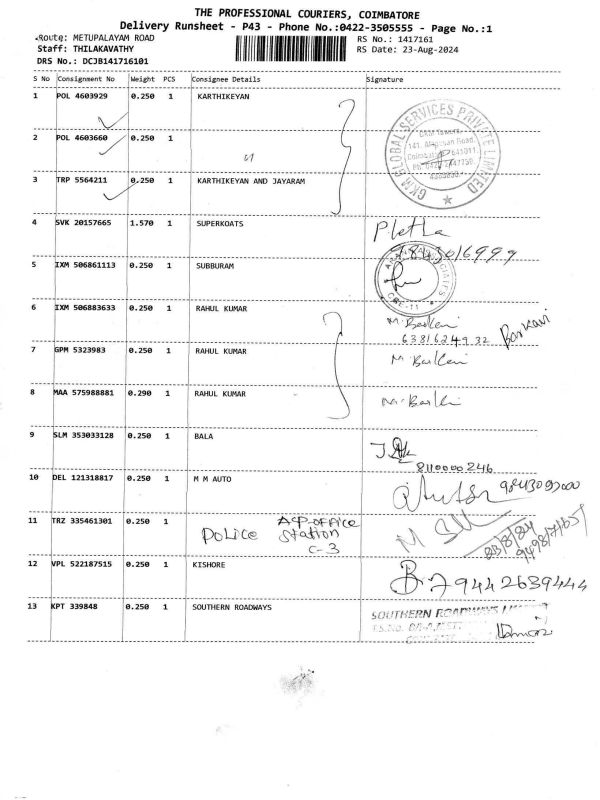 THE PROFESSIONAL COURIERS, COIMBATORE
Delivery Runsheet - P43 - Phone No.:0422-3505555 - Page No.:1
Route: METUPALAYAM ROAD
RS No.: 1417161
Staff: THILAKAVATHY
RS Date: 23-Aug-2024
DRS No.: DCJB141716101
S No Consignment No Weight PCS Consignee Details Signature
1 POL 4603929 0.250 1 KARTHIKEYAN
2 POL 4603660 0.250 1
GKM GLOBAL SERVICES PRIVATE LIMITED
3 TRP 5564211 0.250 1 KARTHIKEYAN AND JAYARAM
4 SVK 20157665 1.570 1 SUPERKOATS
5 IXM 506861113 0.250 1 SUBBURAM
6 IXM 506883633 0.250 1 RAHUL KUMAR
6381624932
7 GPM 5323983 0.250 1 RAHUL KUMAR
8 MAA 575988881 0.290 1 RAHUL KUMAR
9 SLM 353033128 0.250 1 BALA
8110000246
10 DEL 121318817 0.250 1 M M AUTO
11 TRZ 335461301 0.250 1
POLICE Station
C-3
12 VPL 522187515 0.250 1 KISHORE
9442639444
13 KPT 339848 0.250 1 SOUTHERN ROADWAYS
SOUTHERN ROADWAYS